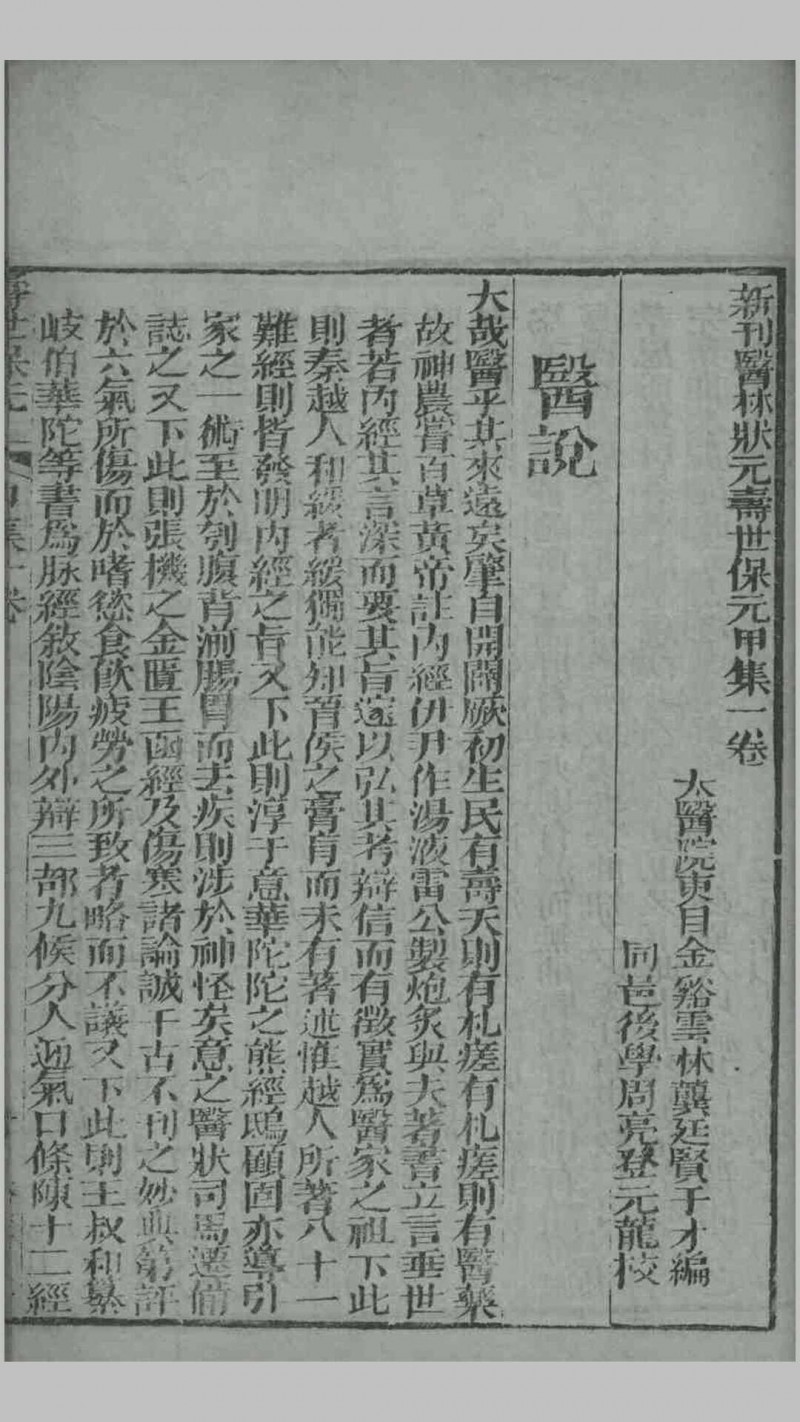 新刊醫林狀元壽世保元甲集一卷
太醫院吏目金谿雲林龔廷賢子才編
同邑後學周亮登元龍校
醫說
大哉醫乎其來遠矣肇自開闢厥初生民有壽夭則有札瘥有札瘥則有醫藥
故神農嘗百草黃帝註內經伊尹作湯液雷公製炮炙與夫著書立言垂世
者若內經其言深而要其旨遠以弘其考辯信而有徵實爲醫家之祖下此
則秦越人和緩者緩獨能知晉侯之膏肓而未有著述惟越人所著八十一
難經則皆發明內經之旨又下此則淳于意華陀陀之熊經鴟顧固亦導引
家之一術至於刳腹背湔腸胃而去疾則涉於神怪矣意之醫狀司馬遷備
誌之又下此則張機之金匱玉函經及傷寒諸論誠千古不刊之妙典第評
於六氣所傷而於嗜慾食飲疲勞之所致者略而不議又下此則王叔和纂
岐伯華陀等書爲脉經敘陰陽內外辯三部九候分人迎氣口條陳十二經
壽世保元 甲集一卷